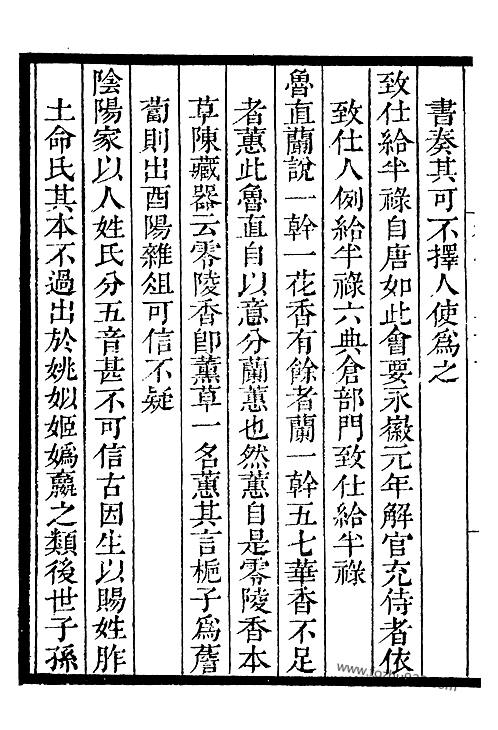 書奏其可不擇人使為之
致仕給半祿自唐如此會要永徽元年解官充侍者依
致仕人例給半祿六典倉部門致仕給半祿
魯直蘭說一幹一花香有餘者蘭一幹五七華香不足
者蕙此魯直自以意分蘭蕙也然蕙自是零陵香本
草陳藏器云零陵香卽薰草一名蕙其言梔子為薝
蔔則出酉陽雜俎可信不疑
陰陽家以人姓氏分五音甚不可信古因生以賜姓胙
土命氏其本不過出於姚姒姬嬀嬴之類後世子孫